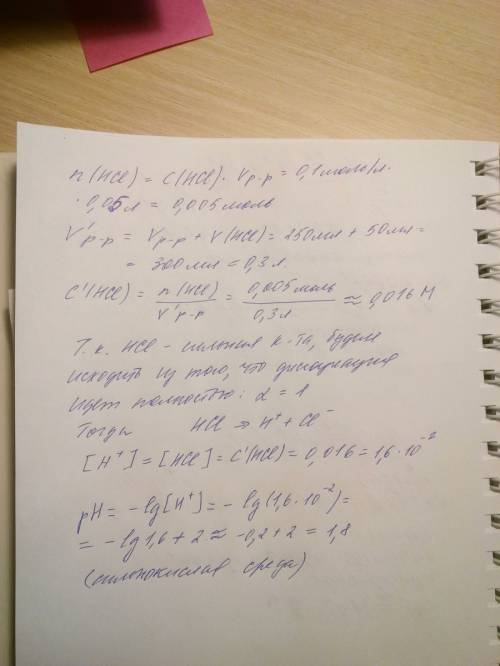 n(HCl) = C(HCl) · Vр-р = 0,1 моль/л ·
· 0,05 л = 0,005 моль
V'р-р = Vр-р + V(HCl) = 250 мл + 50 мл =
= 300 мл = 0,3 л.
C'(HCl) = n(HCl) / V'р-р = 0,005 моль / 0,3 л ≈ 0,016 М
Т.к. HCl - сильная к-та, будем
исходить из того, что диссоциация
идет полностью: α = 1
Тогда HCl ⇒ H⁺ + Cl⁻
[H⁺] = [HCl] = C'(HCl) = 0,016 = 1,6 · 10⁻²
pH = -lg[H⁺] = -lg(1,6 · 10⁻²) =
= -lg1,6 + 2 ≈ -0,2 + 2 = 1,8
(сильнокислая среда)